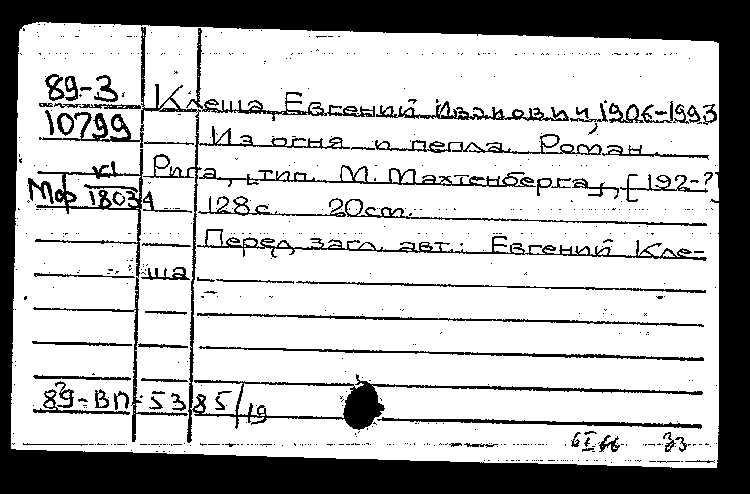 89-3 Клеша, Евгений Иванович, 1906-1993
10799 Из огня и пепла. Роман.
Рига, тип. М. Махтенберга, [192-?]
Мф К1/18034 128с. 20см.
Перед загл. авт.: Евгений Кле-
ша
89-ВП-5385/19
6 I 66 33